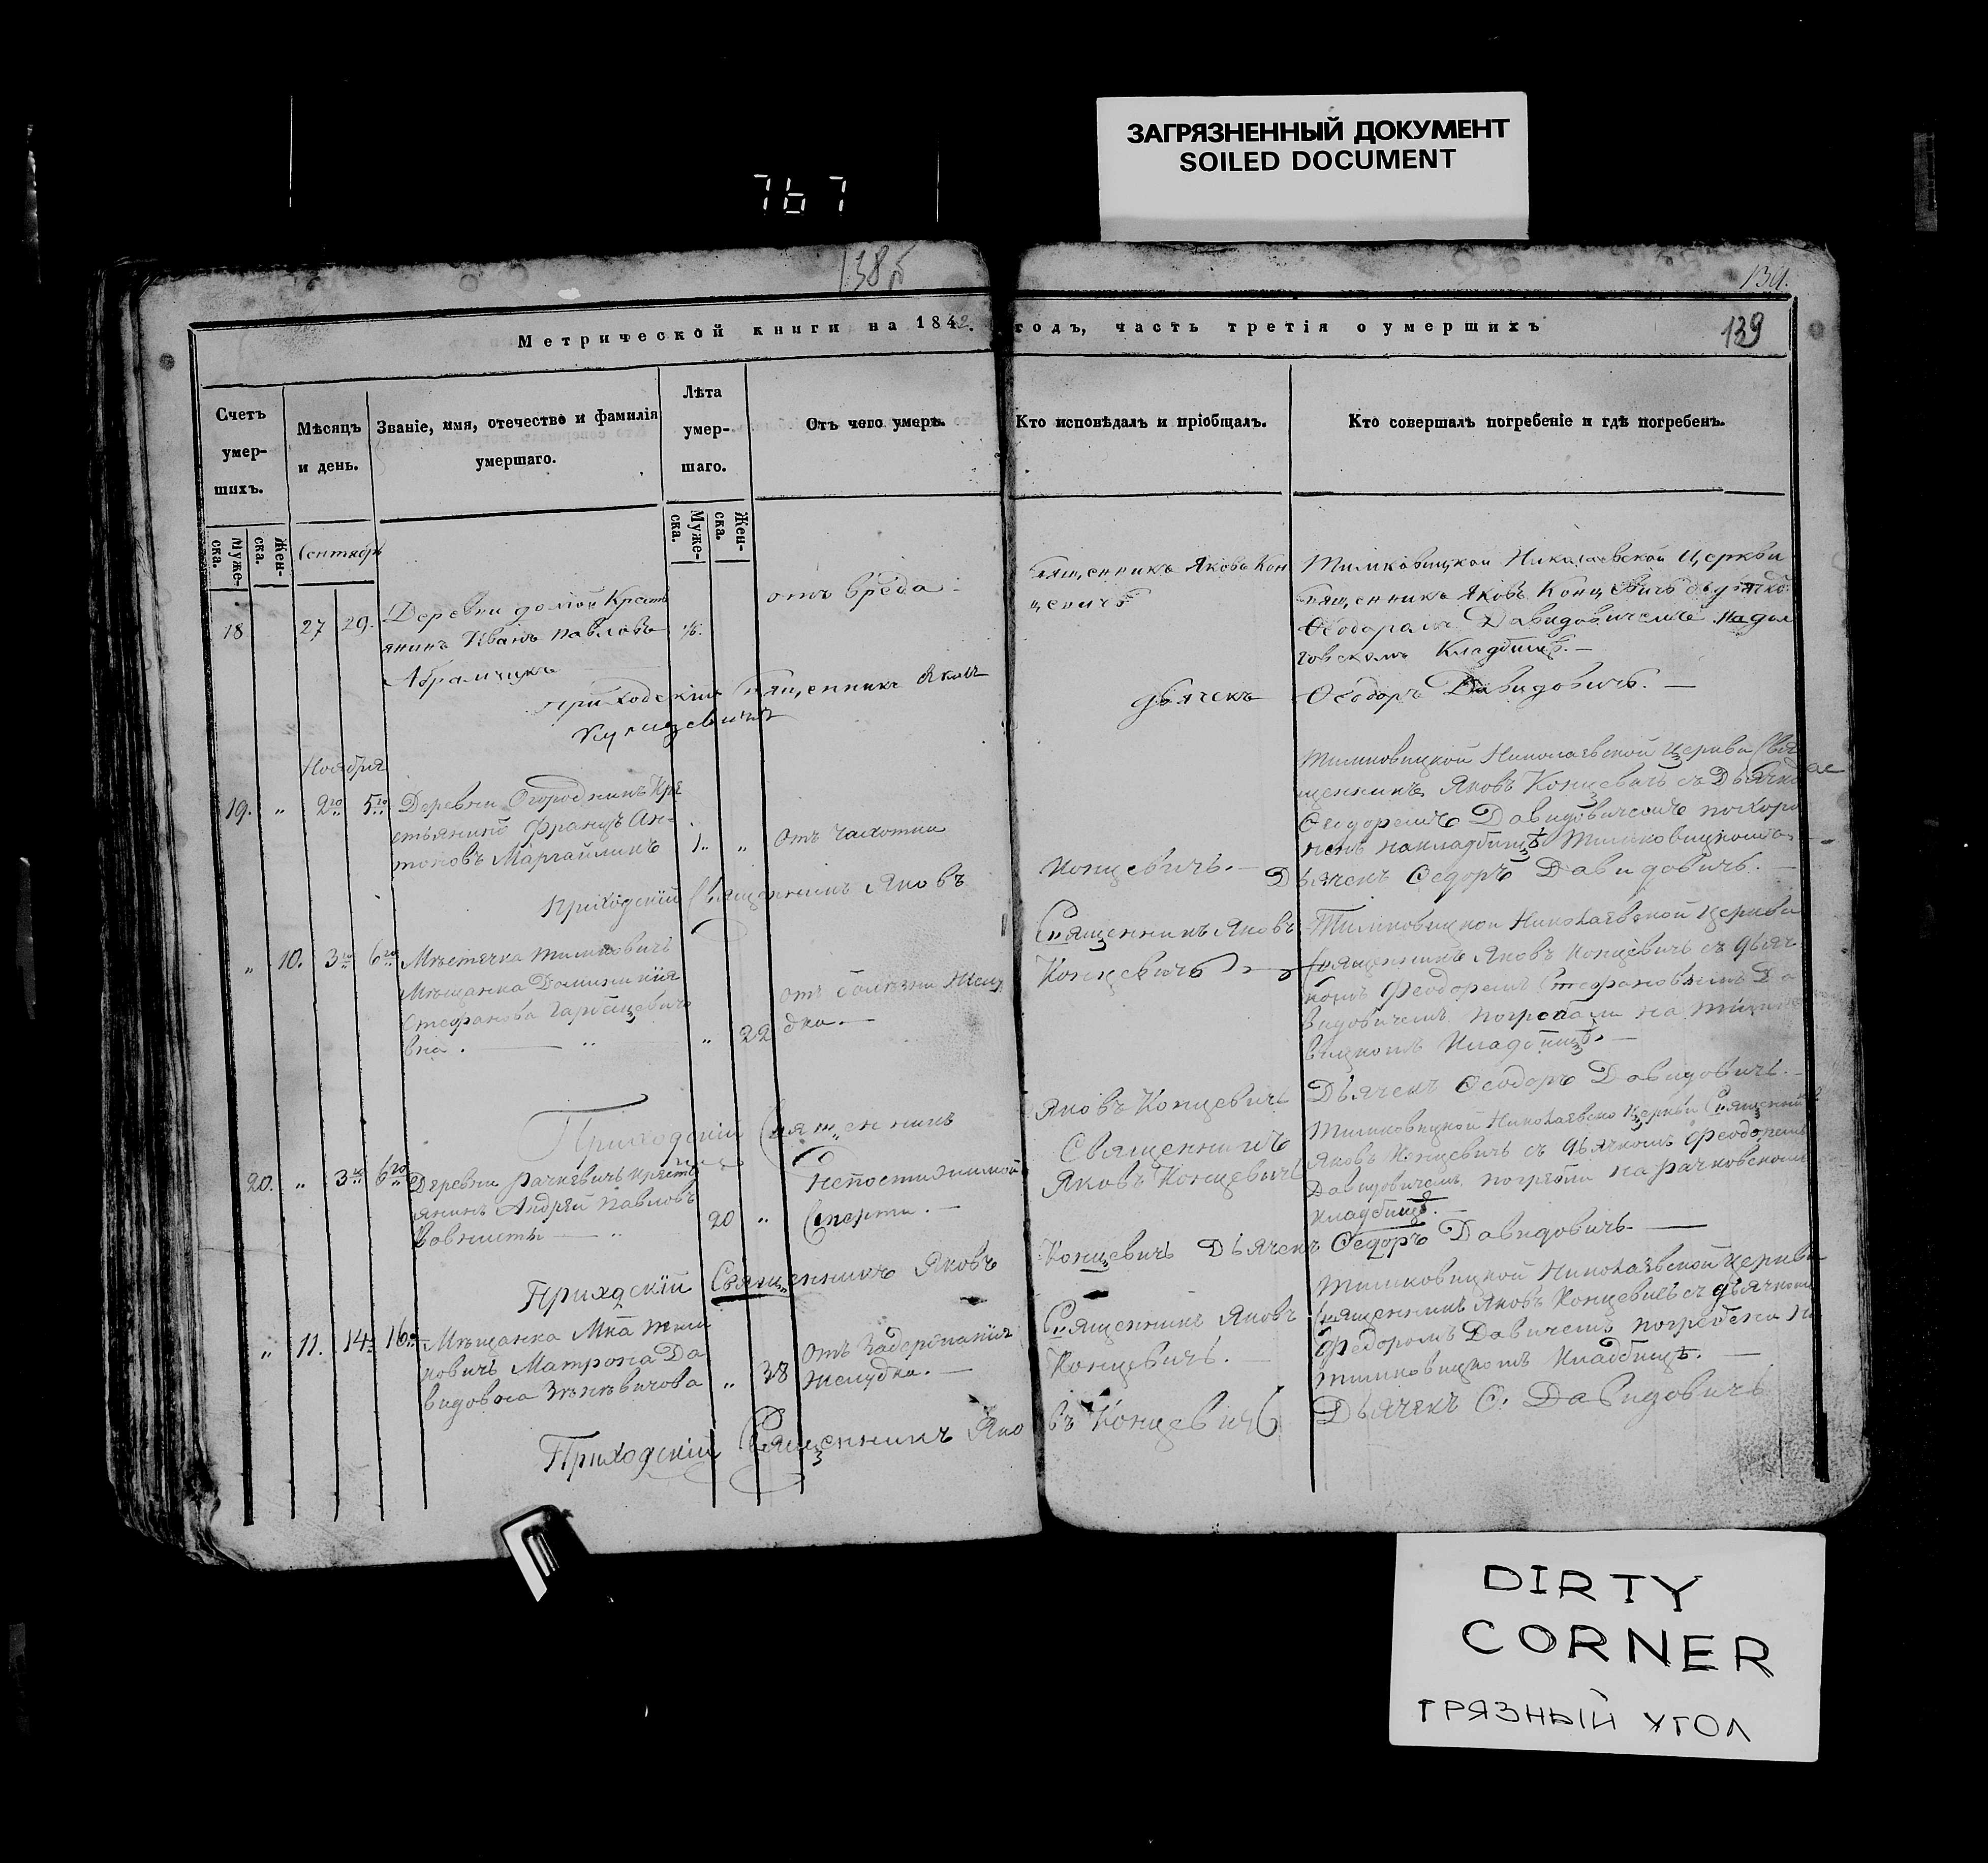 ЗАГРЯЗНЕННЫЙ ДОКУМЕНТ
SOILED DOCUMENT
767
138б
139.
139
Метрической книги на 1842. годъ, часть третія о умершихъ
Счетъ умер-шихъ.
Мѣсяцъ и день.
Званіе, имя, отечество и фамилія умершаго.
Лѣта умер-шаго.
Отъ чего умеръ.
Кто исповѣдалъ и пріобщалъ.
Кто совершалъ погребеніе и гдѣ погребенъ.
Муже-ска.
Жен-ска.
Муже-ска.
Жен-ска.
Сентябрь
18
27 29.
Деревни Крестъ
янинъ Иванъ Павловъ
Абрамчикъ
отъ вреда
Священникъ Яковъ Кон
цевичъ
Тимковицкой Николаевской Церкви
Священникъ Яковъ Концевичъ съ дьячко
Ѳеодоромъ Давидовичемъ на
Кладбищѣ.
Приходскій Священникъ Яковъ
дьячекъ Ѳеодоръ Давидовичъ.
Ноября
19. „ 2го 5го
Деревни Огородникъ Кре
стьянинъ Францъ Ан-
тоновъ Маргайликъ
1. „
отъ чахотки
Тимковицкой Николаевской Церкви Свя
щенникъ Яковъ Концевичъ съ Дьячко
Ѳеодоромъ Давидовичемъ похоро
ненъ накладбищѣ Тимковицкомъ
Приходскій Священникъ Яковъ Концевичъ. Дьячекъ Ѳедоръ Давидовичъ.
„ 10. 3го 6го
Мѣстечка Тимковичъ
Мѣщанка Доминикія
Стефанова
вна.
„ 22
отъ болѣзни Желу
дка.
Священникъ Яковъ
Концевичъ
Тимковицкой Николаевской Церкви
Священникъ Яковъ Концевичъ съ дьяч
комъ Феодоромъ Стефановымъ Да
видовичемъ погребали на Тимко
вицкомъ Кладбищѣ.
Приходскій Священникъ Яковъ Концевичъ Дьячекъ Ѳеодоръ Давидовичъ.
20. „ 3го 6го
Деревни Рачкевичъ кресть
янинъ Андрей Павловъ
20 „
Непостижимой
Смерти.
Священникъ
Яковъ Концевичъ
Тимковицкой Николаевско Церкви Священни
Яковъ Концевичъ съ дьячкомъ Феодоромъ
Давидовичемъ погребли на рачковскомъ
кладбищѣ.
Приходскій Священникъ Яковъ Концевичъ Дьячекъ Ѳедоръ Давидовичъ.
„ 11. 14 16
Мѣщанка Мка Тим
ковичъ Матрона Да
видовна
„ 38
отъ Задержанія
желудка.
Священникъ Яковъ
Концевичъ.
Тимковицкой Николаевской Церкви
Священникъ Яковъ Концевичъ съ дьячкомъ
Федоромъ Давичемъ погребена на
Тимковицкомъ Кладбищѣ.
Приходскій Священникъ Яковъ Концевичъ Дьячекъ Ѳ. Давидовичъ
DIRTY
CORNER
ГРЯЗНЫЙ УГОЛ